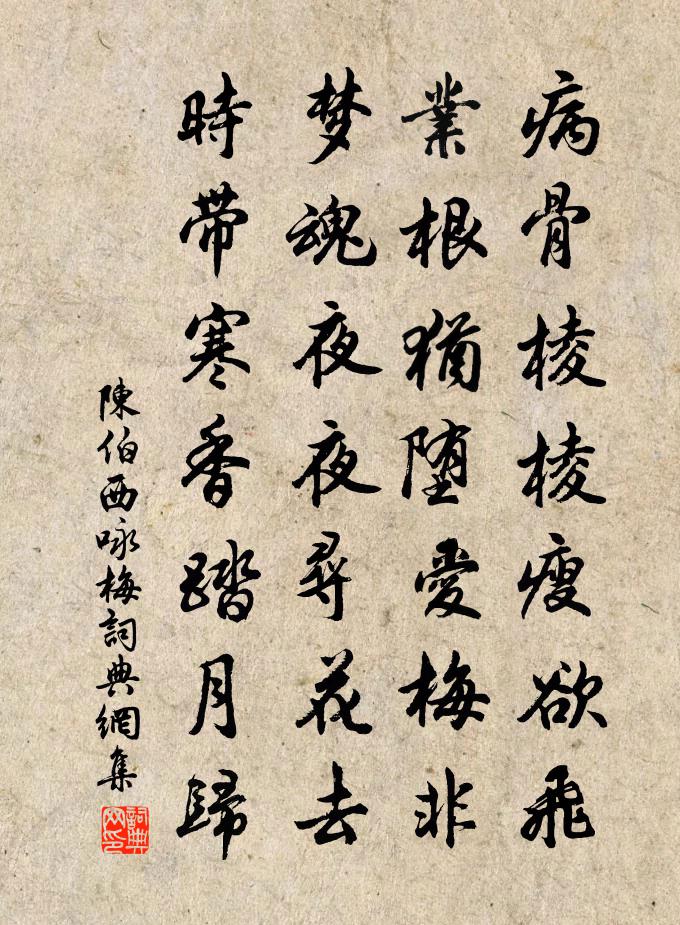 病骨棱棱瘦欲飛
業根猶堕愛梅非
梦魂夜夜尋花去
時带寒香踏月歸
陳伯西咏梅詞典網集
詞典网印